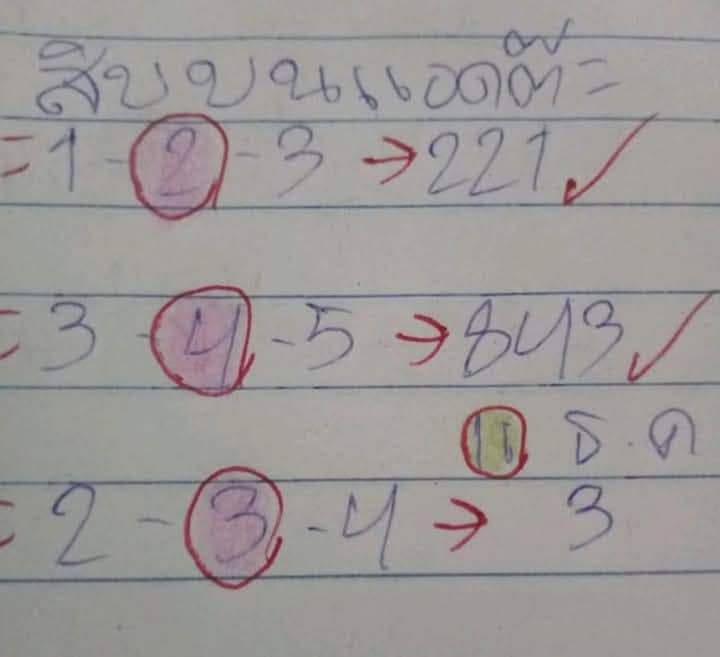 สิบบนแอดติ๊ะ
= 1 - 2 - 3 → 221 ✓
= 3 - 4 - 5 → 843 ✓
11 ธ.ค
= 2 - 3 - 4 → 3